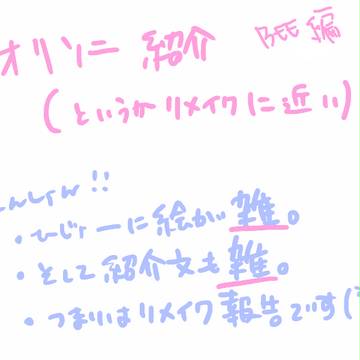 オリソニ 紹介 BEE編
(というかリメイクに近い)
んしょん!!
・ひじょーに絵が雑。
・そして紹介文も雑。
・つまりはリメイク報告です(